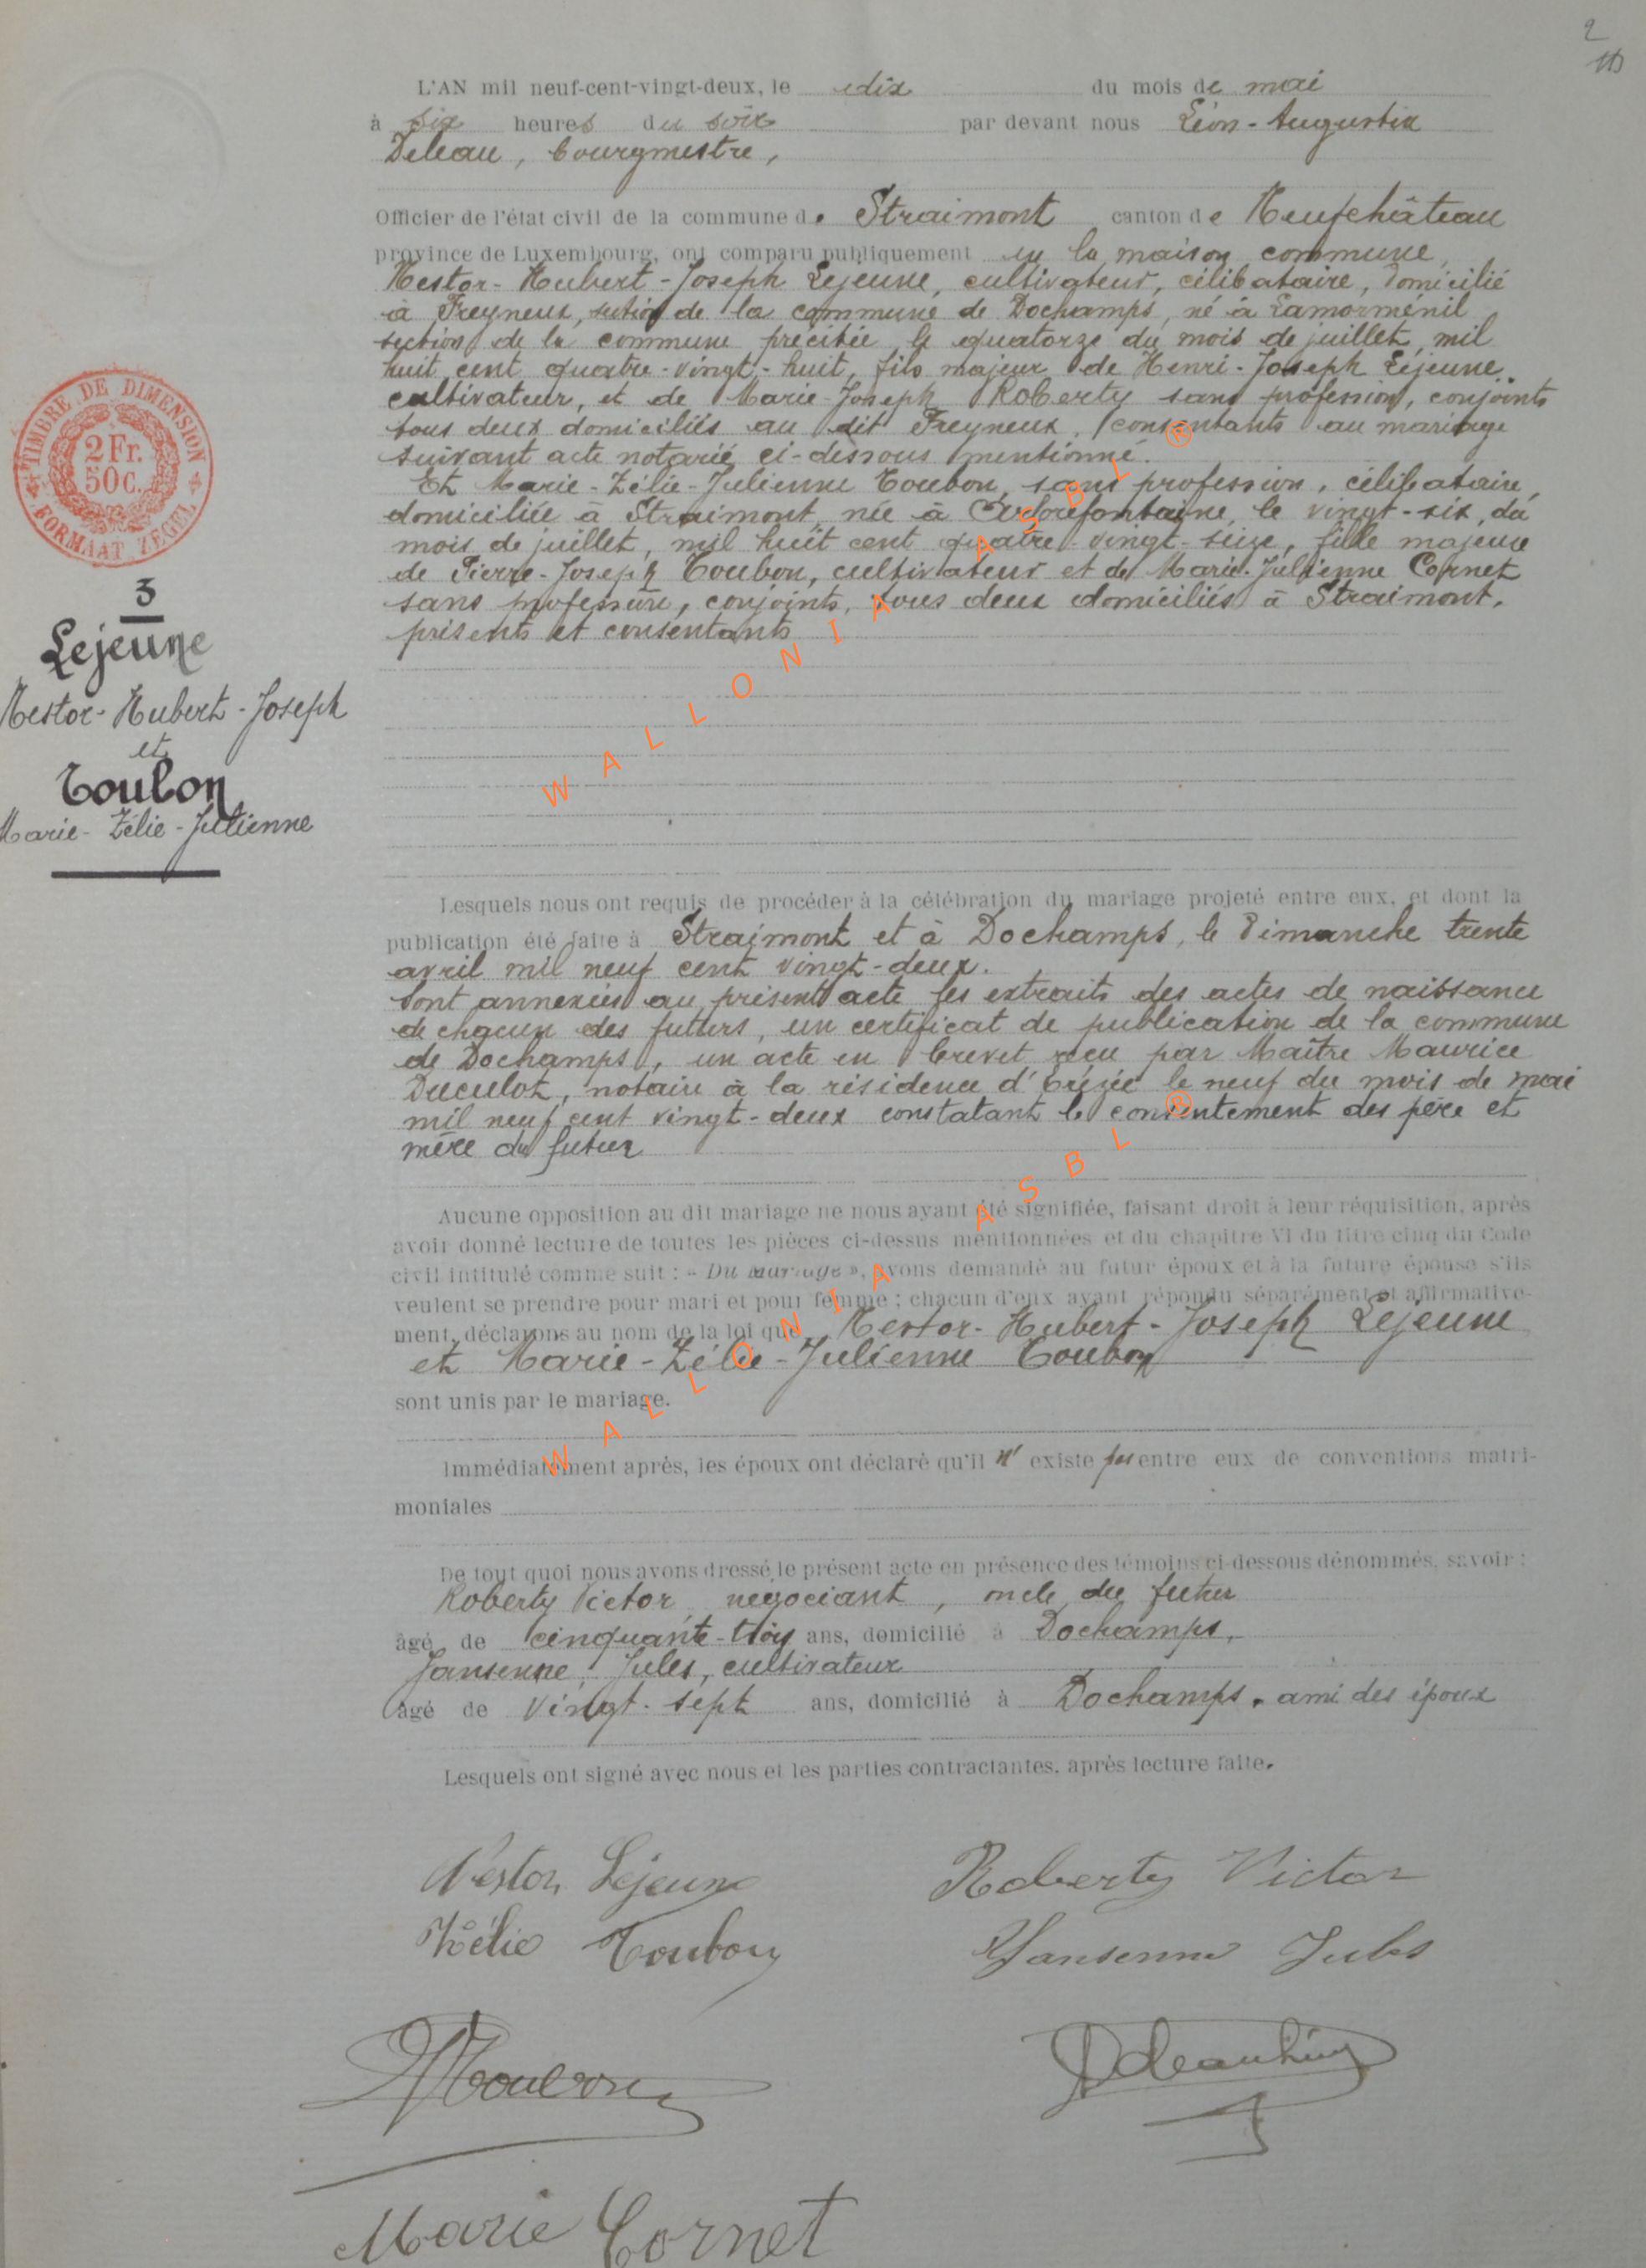 2
L'AN mil neuf-cent-vingt-deux, le dix du mois de mai
à six heures du soir par devant nous Léon-Augustin
Deleau, bourgmestre,
Officier de l'état civil de la commune de Straimont canton de Neufchâteau
province de Luxembourg, ont comparu publiquement en la maison commune,
Nestor-Hubert-Joseph Lejeune, cultivateur, célibataire, domicilié
à Freyneux, section de la commune de Dochamps, né à Lamorménil
section de la commune précitée, le quatorze du mois de juillet, mil
huit cent quatre-vingt-huit, fils majeur de Henri-Joseph Lejeune,
cultivateur, et de Marie-Joseph Roberty sans profession, conjoints
tous deux domiciliés au dit Freyneux, consentants au mariage
suivant acte notarié ci-dessous mentionné.
Et Marie-Zélie-Julienne Toubon, sans profession, célibataire,
domiciliée à Straimont, née à le vingt-six, du
mois de juillet, mil huit cent quatre-vingt-seize, fille majeure
de Pierre-Joseph Toubon, cultivateur et de Marie-Julienne Cornet
sans profession, conjoints, tous deux domiciliés à Straimont,
présents et consentants
TIMBRE DE DIMENSION
2 Fr.
50 C.
FORMAAT ZEGEL
3
Lejeune
Nestor-Hubert-Joseph
et
Toubon
Marie-Zélie-Julienne
Lesquels nous ont requis de procéder à la célébration du mariage projeté entre eux, et dont la
publication été faite à Straimont et à Dochamps, le Dimanche trente
avril mil neuf cent vingt-deux.
Sont annexés au présent acte les extraits des actes de naissance
de chacun des futurs, un certificat de publication de la commune
de Dochamps, un acte en brevet reçu par Maître Maurice
Duculot, notaire à la résidence d'Erezée le neuf du mois de mai
mil neuf cent vingt-deux constatant le consentement des père et
mère du futur
Aucune opposition au dit mariage ne nous ayant été signifiée, faisant droit à leur réquisition, après
avoir donné lecture de toutes les pièces ci-dessus mentionnées et du chapitre VI du titre cinq du Code
civil intitulé comme suit : « Du Mariage », avons demandé au futur époux et à la future épouse s'ils
veulent se prendre pour mari et pour femme ; chacun d'eux ayant répondu séparément et affirmative-
ment, déclarons au nom de la loi que Nestor-Hubert-Joseph Lejeune
et Marie-Zélie-Julienne Toubon
sont unis par le mariage.
Immédiatement après, les époux ont déclaré qu'il n'existe pas entre eux de conventions matri-
moniales
De tout quoi nous avons dressé le présent acte en présence des témoins ci-dessous dénommés, savoir :
Roberty Victor, négociant, oncle du futur
âgé de cinquante-trois ans, domicilié à Dochamps,
Jansenne, Jules, cultivateur
âgé de vingt-sept ans, domicilié à Dochamps, ami des époux
Lesquels ont signé avec nous et les parties contractantes, après lecture faite.
Nestor Lejeune
Roberty Victor
Zélie Toubon
Jansenne Jules
Marie Cornet
WALLONIA ASBL ®
WALLONIA ASBL ®